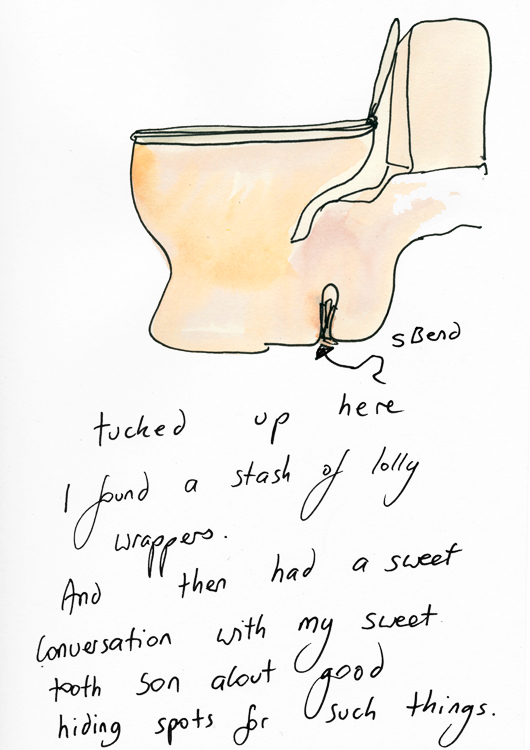 s Bend
tucked up here
I found a stash of lolly
wrappers.
And then had a sweet
Conversation with my sweet
tooth Son about good
hiding spots for such things.